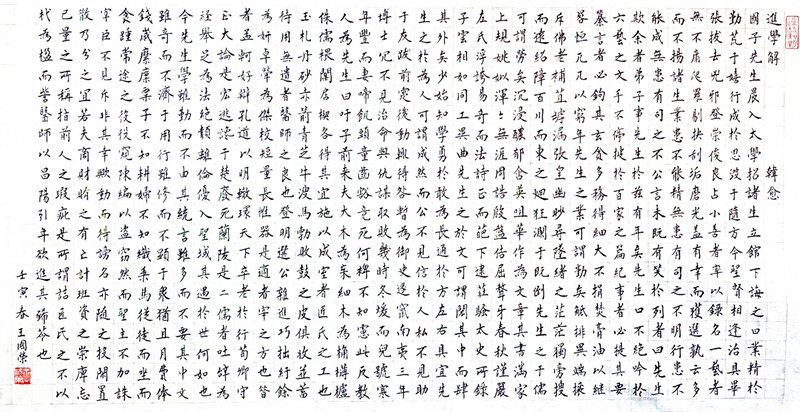 進學解 韓愈
國子先生晨入太學招諸生立館下誨之曰業精於
勤荒于嬉行成於思毀于隨方今聖賢相逢治具畢
張拔去兇邪登崇俊良占小善者率以錄名一藝者
無不庸爬羅剔抉刮垢磨光蓋有幸而獲選孰云多
而不揚諸生業患不能精無患有司之不明行患不
能成無患有司之不公言未既有笑於列者曰先生
欺余哉弟子事先生於茲有年矣先生口不絕吟於
六藝之文手不停披於百家之篇紀事者必提其要
纂言者必鉤其玄貪多務得細大不捐焚膏油以繼
晷恆兀兀以窮年先生之業可謂勤矣觝排異端攘
斥佛老補苴罅漏張皇幽眇尋墜緒之茫茫獨旁搜
而遠紹障百川而東之迴狂瀾于既倒先生之于儒
可謂勞矣沉浸醲郁含英咀華作為文章其書滿家
上規姚姒渾渾無涯周誥殷盤佶屈聱牙春秋謹嚴
左氏浮誇易奇而法詩正而葩下逮莊騷太史所錄
子雲相如同工異曲先生之於文可謂閎其中而肆
其外矣少始知學勇於敢為長通於方左右具宜先
生之於為人可謂成矣然而公不見信於人私不見助
于友跋前躓後動輒得咎暫為御史遂竄南夷三年
博士冗不見治命與仇謀取敗幾時冬暖而兒號寒
年豐而妻啼飢頭童齒豁竟死何裨不知慮此反教
人為先生曰吁子前來夫大木為杗細木為桷欂櫨
侏儒椳闑扂楔各得其宜施以成室者匠氏之工也
玉札丹砂赤箭青芝牛溲馬勃敗鼓之皮俱收並蓄
待用無遺者醫師之良也登明選公雜進巧拙紆餘
為妍卓犖為傑校短量長惟器是適者宰之方也昔
者孟軻好辯孔道以明轍環天下卒老於行荀卿守
正大論是宏逃讒于楚廢死蘭陵是二儒者吐辭為
經舉足為法絕類離倫優入聖域其遇於世何如也
今先生學雖勤而不由其統言雖多而不要其中文
雖奇而不濟于用行雖修而不顯于眾猶且月費俸
錢歲靡廩粟子不知耕婦不知織乘馬從徒坐而
食踵常途之役役窺陳編以盜竊然而聖主不加誅
宰臣不見斥非其幸歟動而得謗名亦隨之投閒置
散乃分之宜若夫商財賄之有亡計班資之崇庳忘
己量之所稱指前人之瑕疵是所謂詰匠氏之不以
杙為楹而訾醫師以昌陽引年欲進其豨苓也
壬寅春王國榮